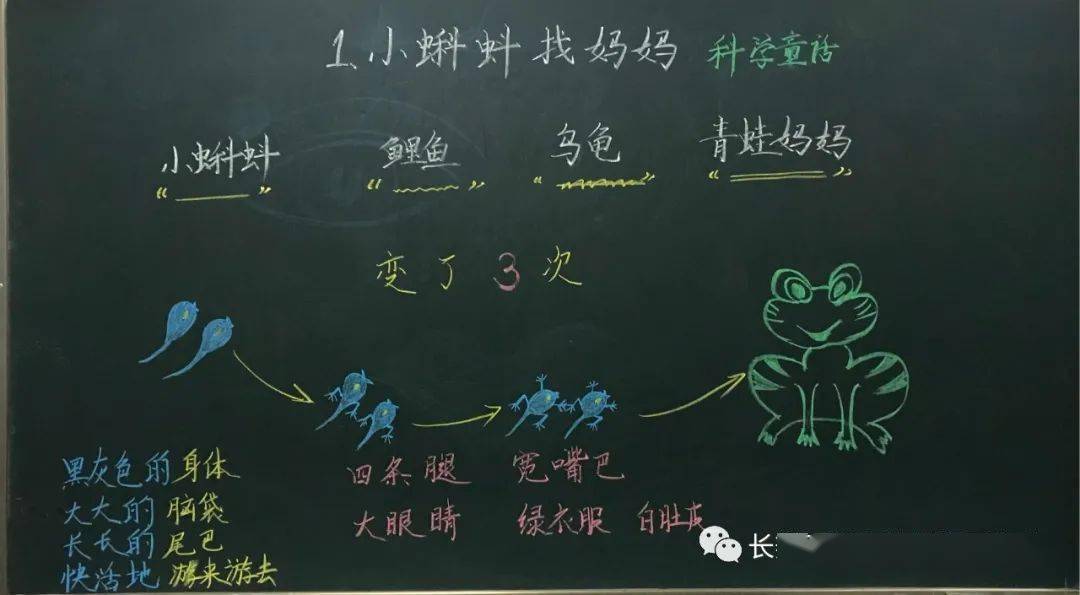 1.小蝌蚪找妈妈 科学童话
小蝌蚪 鲤鱼 乌龟 青蛙妈妈
“ ” “ ” “ ” “ ”
变了3次
黑灰色的身体 四条腿 宽嘴巴
大大的脑袋 大眼睛 绿衣服 白肚皮
长长的尾巴
快活地游来游去
长